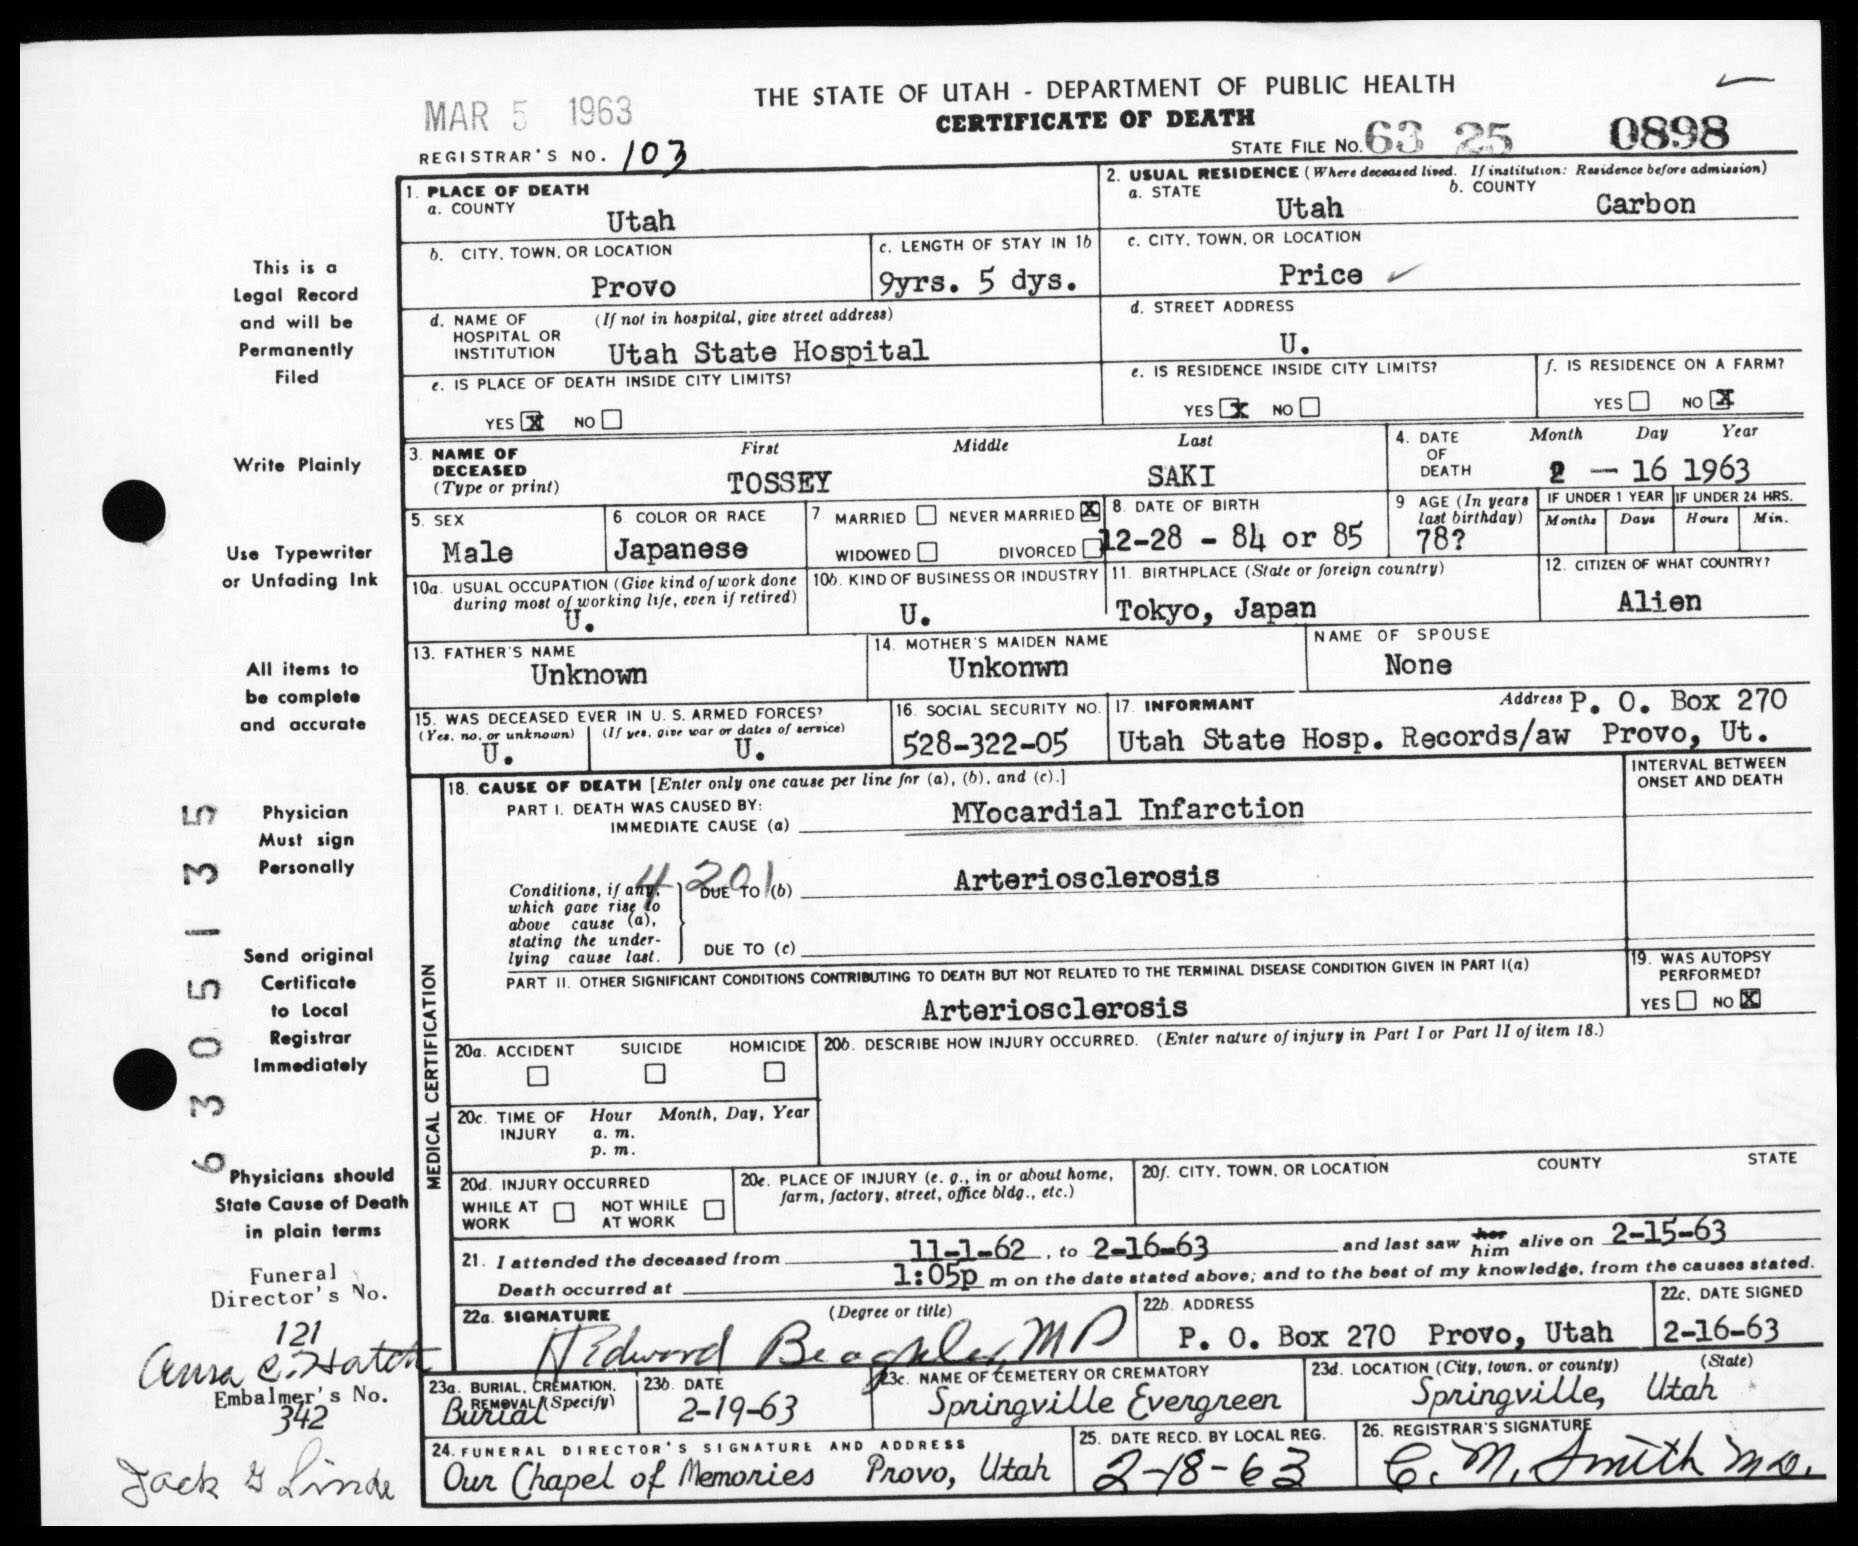 THE STATE OF UTAH - DEPARTMENT OF PUBLIC HEALTH
MAR 5 1963
CERTIFICATE OF DEATH
REGISTRAR'S NO. 103
STATE FILE NO. 63 25 0898
1. PLACE OF DEATH
a. COUNTY
Utah
2. USUAL RESIDENCE (Where deceased lived. If institution: Residence before admission)
a. STATE b. COUNTY
Utah Carbon
b. CITY, TOWN, OR LOCATION
Provo
c. LENGTH OF STAY IN 1b
9yrs. 5 dys.
c. CITY, TOWN, OR LOCATION
Price
d. NAME OF HOSPITAL OR INSTITUTION (If not in hospital, give street address)
Utah State Hospital
d. STREET ADDRESS
U.
e. IS PLACE OF DEATH INSIDE CITY LIMITS?
YES X NO
e. IS RESIDENCE INSIDE CITY LIMITS?
YES X NO
f. IS RESIDENCE ON A FARM?
YES NO X
3. NAME OF DECEASED (Type or print)
First Middle Last
TOSSEY SAKI
4. DATE OF DEATH
Month Day Year
2 - 16 1963
5. SEX
Male
6. COLOR OR RACE
Japanese
7. MARRIED NEVER MARRIED X
WIDOWED DIVORCED
8. DATE OF BIRTH
12-28 - 84 or 85
9 AGE (In years last birthday)
78?
IF UNDER 1 YEAR
Months Days
IF UNDER 24 HRS.
Hours Min.
10a. USUAL OCCUPATION (Give kind of work done during most of working life, even if retired)
U.
10b. KIND OF BUSINESS OR INDUSTRY
U.
11. BIRTHPLACE (State or foreign country)
Tokyo, Japan
12. CITIZEN OF WHAT COUNTRY?
Alien
13. FATHER'S NAME
Unknown
14. MOTHER'S MAIDEN NAME
Unkonwn
NAME OF SPOUSE
None
15. WAS DECEASED EVER IN U. S. ARMED FORCES?
(Yes, no, or unknown) (If yes, give war or dates of service)
U. U.
16. SOCIAL SECURITY NO.
528-322-05
17. INFORMANT Address P. O. Box 270
Utah State Hosp. Records/aw Provo, Ut.
MEDICAL CERTIFICATION
18. CAUSE OF DEATH [Enter only one cause per line for (a), (b), and (c).]
INTERVAL BETWEEN ONSET AND DEATH
PART I. DEATH WAS CAUSED BY:
IMMEDIATE CAUSE (a) MYocardial Infarction
4201
Conditions, if any, which gave rise to above cause (a), stating the underlying cause last.
DUE TO (b) Arteriosclerosis
DUE TO (c)
PART II. OTHER SIGNIFICANT CONDITIONS CONTRIBUTING TO DEATH BUT NOT RELATED TO THE TERMINAL DISEASE CONDITION GIVEN IN PART I(a)
Arteriosclerosis
19. WAS AUTOPSY PERFORMED?
YES NO X
20a. ACCIDENT SUICIDE HOMICIDE
20b. DESCRIBE HOW INJURY OCCURRED. (Enter nature of injury in Part I or Part II of item 18.)
20c. TIME OF INJURY
Hour Month, Day, Year
a. m.
p. m.
20d. INJURY OCCURRED
WHILE AT WORK NOT WHILE AT WORK
20e. PLACE OF INJURY (e. g., in or about home, farm, factory, street, office bldg., etc.)
20f. CITY, TOWN, OR LOCATION COUNTY STATE
21. I attended the deceased from 11-1-62, to 2-16-63 and last saw her him alive on 2-15-63
Death occurred at 1:05p m on the date stated above; and to the best of my knowledge, from the causes stated.
22a. SIGNATURE (Degree or title)
Edward Beaghler, MD
22b. ADDRESS
P. O. Box 270 Provo, Utah
22c. DATE SIGNED
2-16-63
23a. BURIAL, CREMATION, REMOVAL (Specify)
Burial
23b. DATE
2-19-63
23c. NAME OF CEMETERY OR CREMATORY
Springville Evergreen
23d. LOCATION (City, town, or county) (State)
Springville, Utah
24. FUNERAL DIRECTOR'S SIGNATURE AND ADDRESS
Our Chapel of Memories Provo, Utah
25. DATE RECD. BY LOCAL REG.
2-18-63
26. REGISTRAR'S SIGNATURE
C. M. Smith M.D.
This is a
Legal Record
and will be
Permanently
Filed
Write Plainly
Use Typewriter
or Unfading Ink
All items to
be complete
and accurate
Physician
Must sign
Personally
Send original
Certificate
to Local
Registrar
Immediately
Physicians should
State Cause of Death
in plain terms
6305135
Funeral
Director's No.
121
Anna C. Hatch
Embalmer's No.
342
Jack G Linde